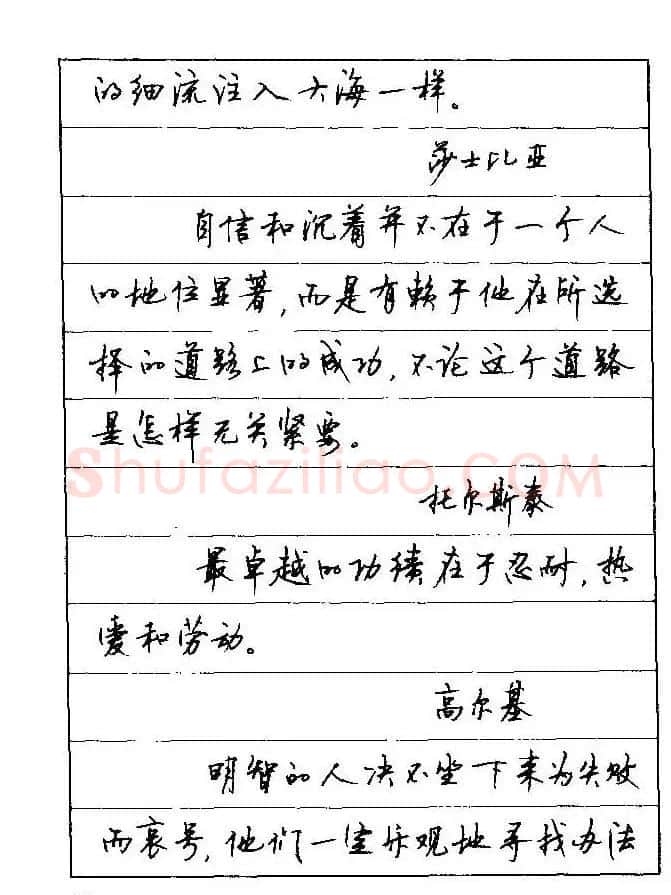 的细流注入大海一样。
莎士比亚
自信和沉着并不在于一个人
的地位显著,而是有赖于他在所选
择的道路上的成功,不论这个道路
是怎样无关紧要。
Shufaziliao.COM
托尔斯泰
最卓越的功绩在于忍耐,热
爱和劳动。
高尔基
明智的人决不坐下来为失败
而哀号,他们一定乐观地寻找办法